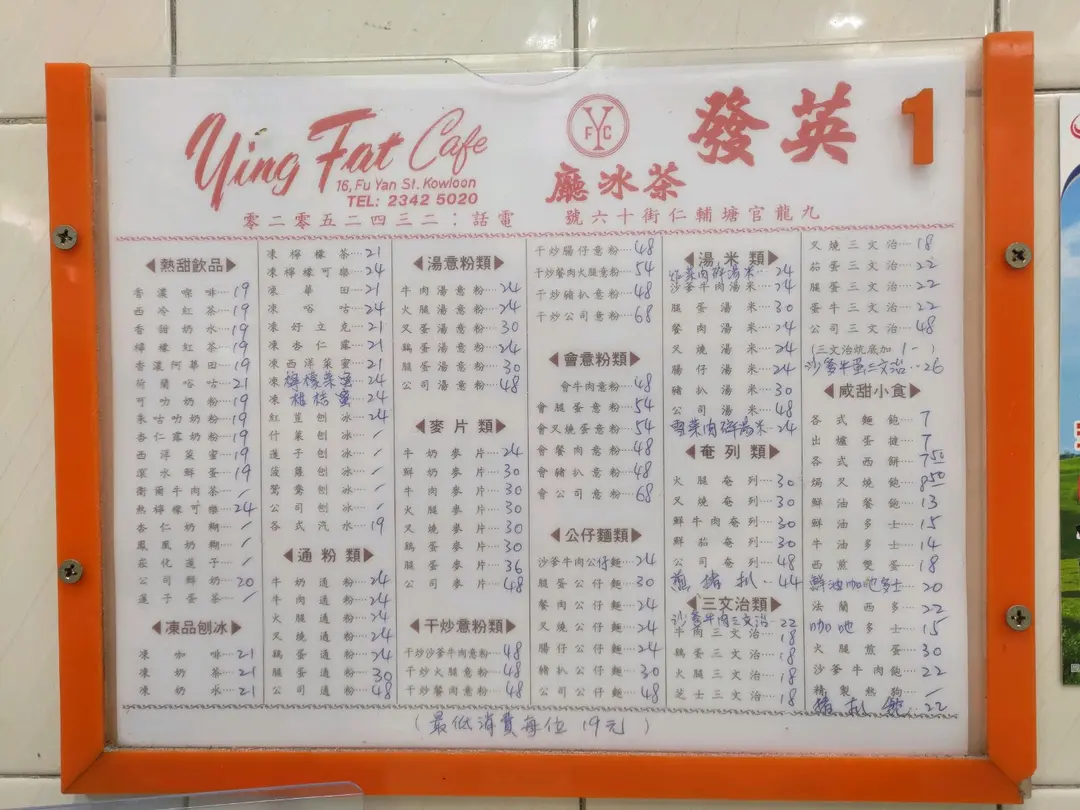 Ying Fat Cafe
16, Fu Yan St. Kowloon
TEL: 2342 5020
YFC
英發
茶冰廳
1
九龍官塘輔仁街十六號
電話：二三四二五零二零
◀熱甜飲品▶
香濃㗎啡…19
西冷紅茶…19
香甜奶水…19
檸檬紅茶…19
香濃阿華田…19
荷蘭唂咕…21
可叻奶粉…19
朱咕叻奶粉…19
杏仁露奶粉…19
西洋菜蜜…19
滾水鮮蛋…19
衛爾牛肉茶… /
熱檸檬可樂…24
杏仁奶糊… /
鳳凰奶糊… /
崧化蓮子… /
公司鮮奶…20
蓮子蛋茶… /
◀凍品刨冰▶
凍咖啡…21
凍奶茶…21
凍奶水…21
凍檸檬茶…21
凍檸檬可樂…24
凍華田…21
凍唂咕…24
凍好立克…21
凍杏仁露…21
凍西洋菜蜜…21
凍檸檬菜蜜…24
凍柑桔蜜…24
紅荳刨冰…24
什菓刨冰… /
蓮子刨冰… /
菠蘿刨冰… /
鴛鴦刨冰… /
公司刨冰… /
各式汽水…19
◀通粉類▶
牛奶通粉…24
牛肉通粉…24
火腿通粉…24
叉燒通粉…24
鷄蛋通粉…24
腿蛋通粉…30
公司通粉…48
◀湯意粉類▶
牛肉湯意粉…24
火腿湯意粉…24
叉蛋湯意粉…30
鷄蛋湯意粉…24
腿蛋湯意粉…30
公司湯意粉…48
◀麥片類▶
牛奶麥片…24
鮮奶麥片…30
牛肉麥片…30
火腿麥片…30
叉燒麥片…30
鷄蛋麥片…30
腿蛋麥片…36
公司麥片…48
◀干炒意粉類▶
干炒沙爹牛肉意粉…48
干炒火腿意粉…48
干炒餐肉意粉…48
干炒腸仔意粉…48
干炒餐肉火腿意粉…54
干炒豬扒意粉…48
干炒公司意粉…68
◀會意粉類▶
會牛肉意粉…48
會腿蛋意粉…54
會叉燒蛋意粉…54
會餐肉意粉…48
會豬扒意粉…48
會公司意粉…68
◀公仔麵類▶
沙爹牛肉公仔麵…24
腿蛋公仔麵…30
餐肉公仔麵…24
叉燒公仔麵…24
腸仔公仔麵…24
豬扒公仔麵…30
公司公仔麵…48
◀湯米類▶
菜肉碎湯米…24
沙爹牛肉湯米…24
腿蛋湯米…30
餐肉湯米…24
叉燒湯米…24
腸仔湯米…24
豬扒湯米…30
公司湯米…48
雪菜肉碎湯米…24
◀奄列類▶
火腿奄列…30
叉燒奄列…30
鮮牛肉奄列…30
鮮茄奄列…30
公司奄列…48
煎豬扒…44
◀三文治類▶
沙爹牛肉三文治…22
牛肉三文治…18
鷄蛋三文治…18
火腿三文治…18
芝士三文治…18
叉燒三文治…18
茄蛋三文治…22
腿蛋三文治…22
蛋牛三文治…22
公司三文治…48
(三文治烘底加 1- )
沙爹牛蛋三文治…26
◀咸甜小食▶
各式麵飽…7
出爐蛋撻…7
各式西餅…7.50
焗叉燒飽…8.50
鮮油餐飽…13
鮮油多士…15
牛油多士…14
西煎雙蛋…18
鮮油咖吔多士…20
法蘭西多…22
咖吔多士…15
火腿煎蛋…30
沙爹牛肉飽…22
精製熱狗… /
豬扒飽…22
(最低消費每位 19元)